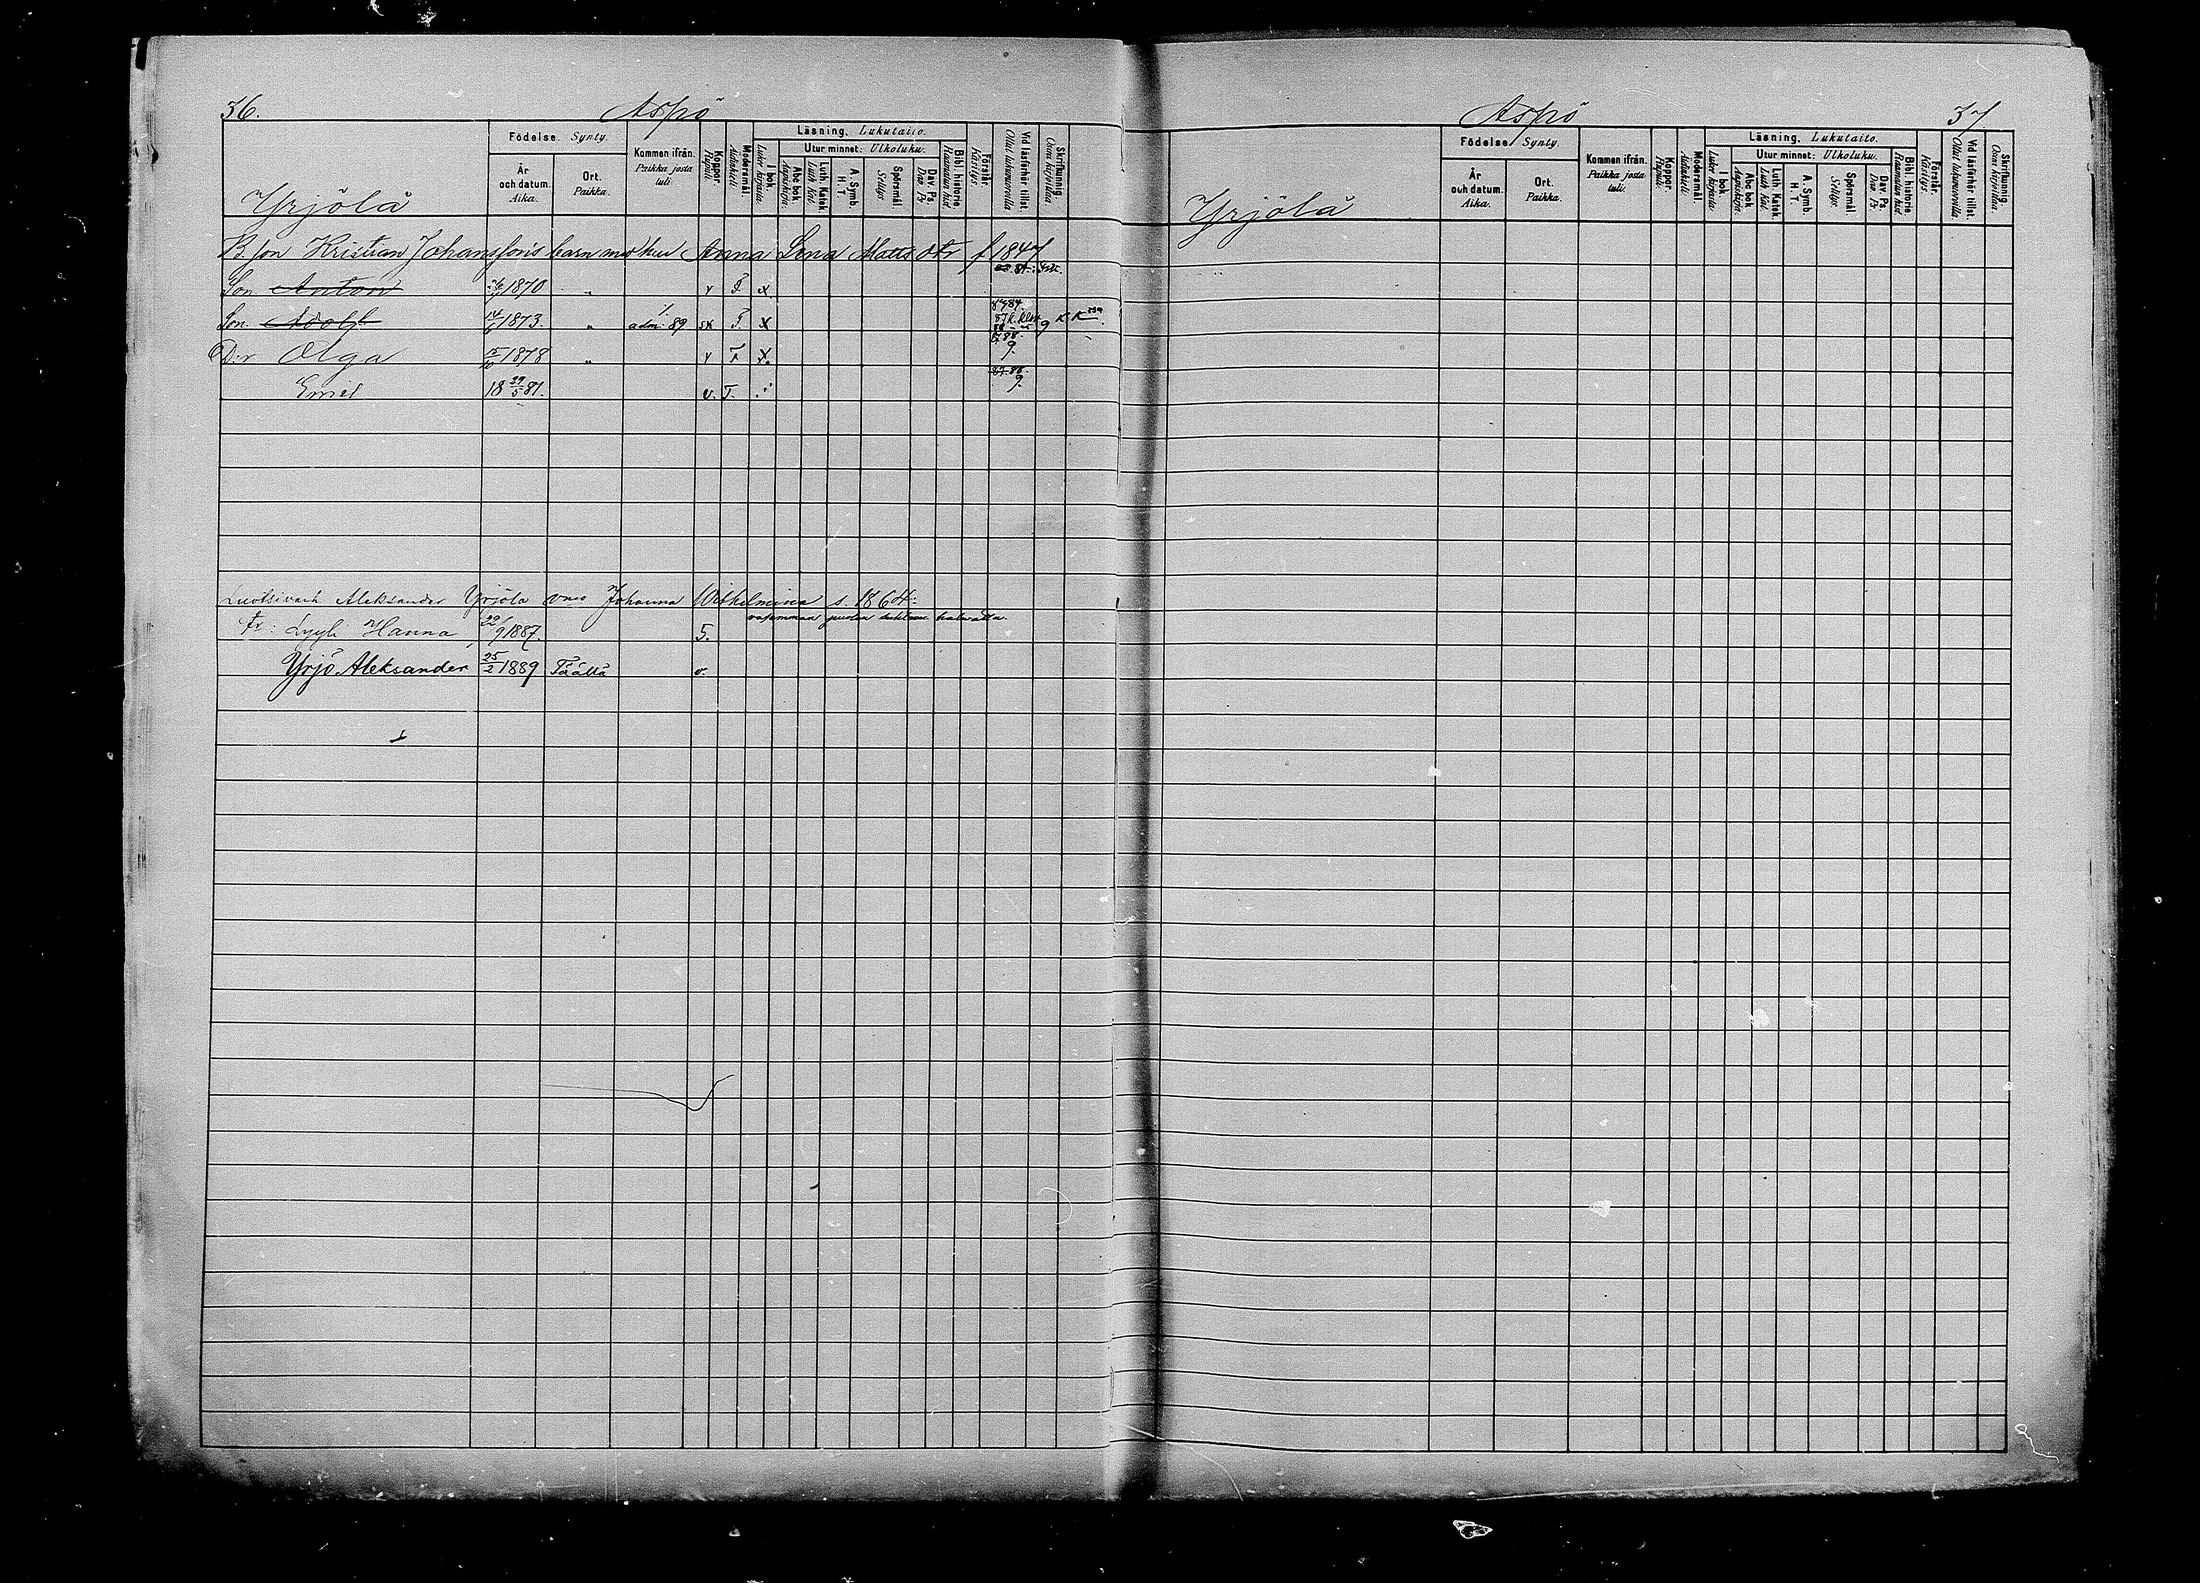 36.
Aspö
Födelse. Synty.
År och datum. Aika.
Ort. Paikka.
Kommen ifrån. Paikka josta tuli.
Koppor. Rupuli.
Modersmål. Äidinkieli.
Läsning. Lukutaito.
I bok. Luker kirjasta.
Utur minnet: Ulkoluku.
Abc bok. Aapiskirja.
Luth. Katek. Luth. Kat.
A. Symb. H. T.
Spörsmål. Selitys.
Dav. Ps. Dav. Ps.
Bibl. historie. Raamatun hist.
Förstår. Käsitys.
Vid läsförhör tillst. Ollut lukuvuorolla
Skrifkunnig. Osaa kirjoittaa.
Yrjölä
B. son Kristian Johanssons barn mod hu Anna Lena Matts dtr f 1847
Son Anton 1870 " v F. x
Son. Adolf 1873. " adm. 89 sk F. x
D:r Olga 15/10 1878 " v F x
Emil 18 29/5 81. v. F.
Aleksander Yrjölä vmo Johanna Wilhelmina s. 1864:
Tr: Lyyli Hanna 22/9 1887. 5.
Yrjö Aleksander 25/2 1889 Täältä v.
Aspö
37
Födelse. Synty.
År och datum. Aika.
Ort. Paikka.
Kommen ifrån. Paikka josta tuli.
Koppor. Rupuli.
Modersmål. Äidinkieli.
Läsning. Lukutaito.
I bok. Luker kirjasta.
Utur minnet: Ulkoluku.
Abc bok. Aapiskirja.
Luth. Katek. Luth. Kat.
A. Symb. H. T.
Spörsmål. Selitys.
Dav. Ps. Dav. Ps.
Bibl. historie. Raamatun hist
Förstår. Käsitys.
Vid läsförhör tillst. Ollut lukuvuorolla.
Skrifkunnig. Osaa kirjoittaa.
Yrjölä